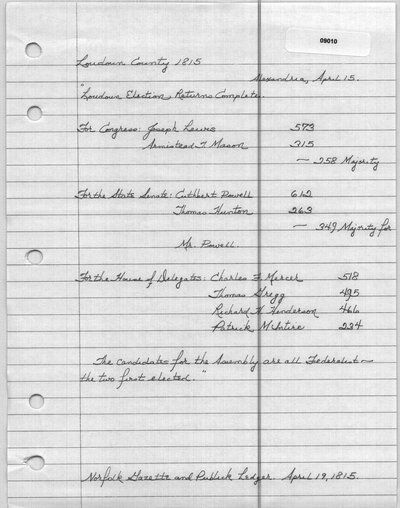 09010
Loudoun County 1815
Alexandria, April 15.
"Loudoun Election Returns Complete.
For Congress: Joseph Lewis 573
Armistead T Mason 315
— 258 Majority
For the State Senate: Cuthbert Powell 612
Thomas Hunton 263
— 349 Majority for
Mr. Powell.
For the House of Delegates: Charles F Mercer 518
Thomas Gregg 495
Richard H Henderson 466
Patrick McIntire 234
The candidates for the Assembly are all Federalist —
the two first elected."
Norfolk Gazette and Publick Ledger. April 19, 1815.